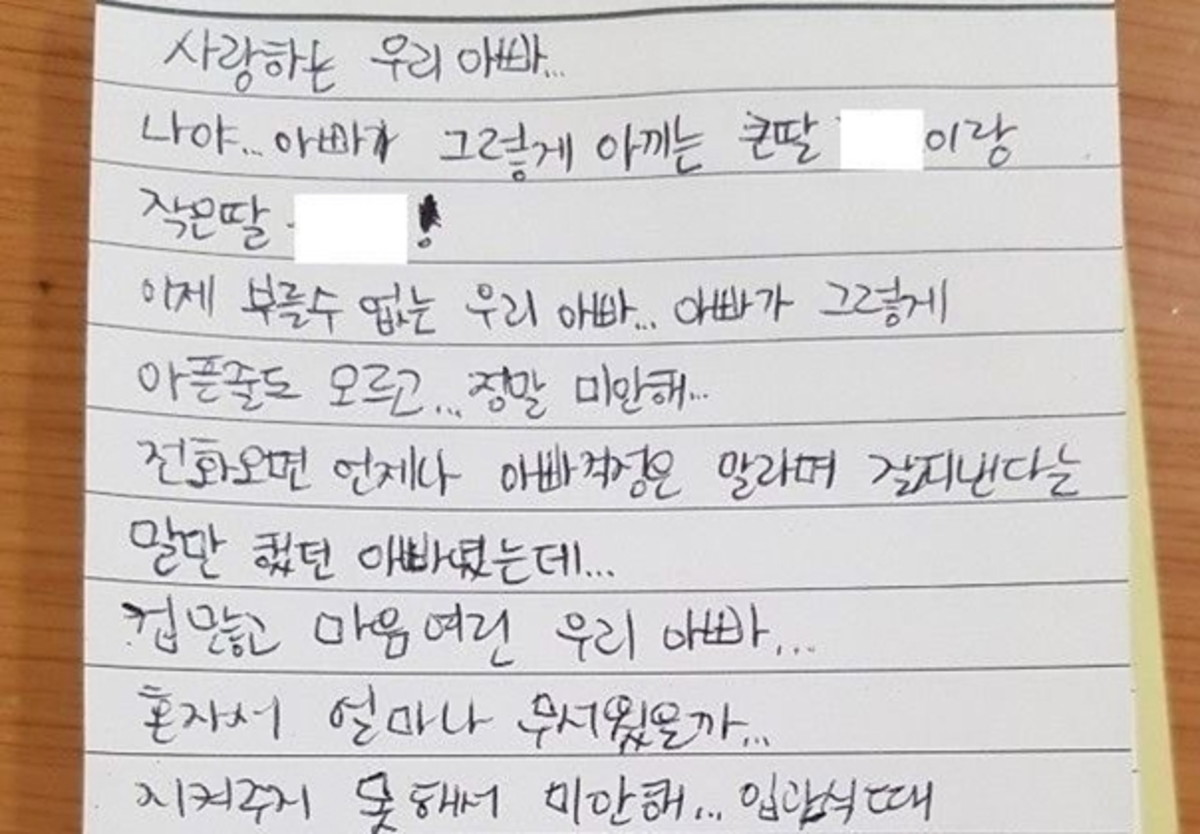 사랑하는 우리 아빠...
나야... 아빠가 그렇게 아끼는 큰딸 이랑
작은딸 !
이제 부를수 없는 우리 아빠... 아빠가 그렇게
아픈줄도 모르고... 정말 미안해...
전화오면 언제나 아빠걱정은 말라며 잘지낸다는
말만 했던 아빠였는데...
겁많고 마음여린 우리 아빠...
혼자서 얼마나 무서웠을까...
지켜주지 못해서 미안해... 입관식때